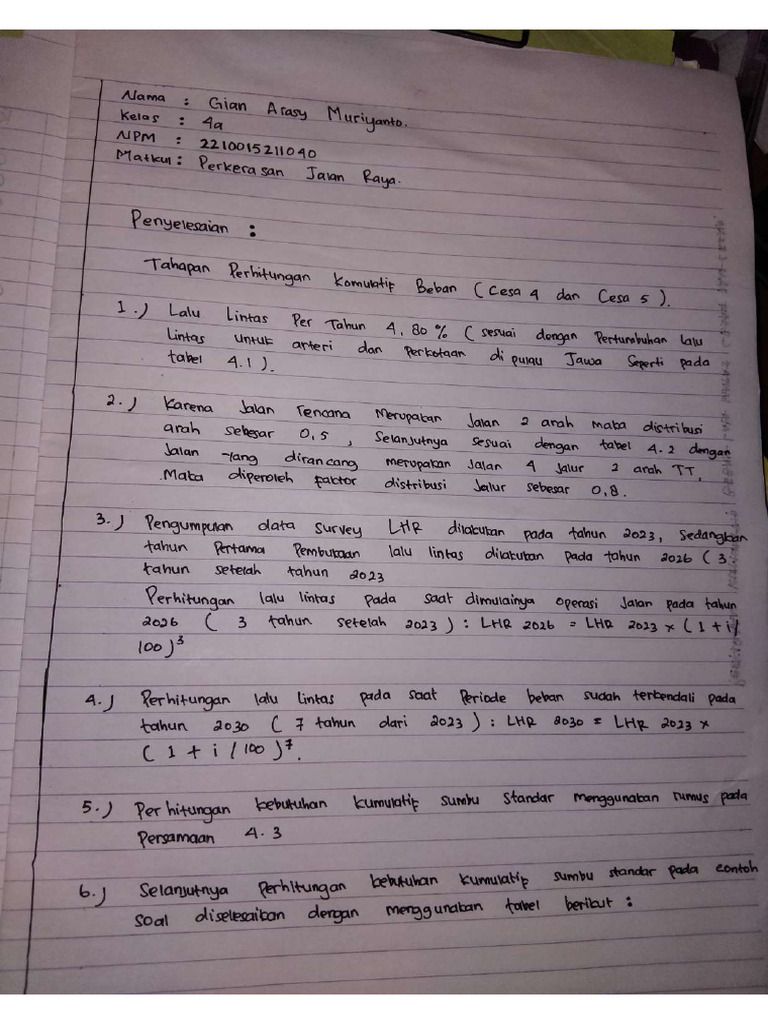 Nama : Gian Arasy Muriyanto.
Kelas : 4a
NPM : 2210015211040
Matkul : Perkerasan Jalan Raya.
Penyelesaian :
Tahapan Perhitungan Komulatif Beban ( Cesa 4 dan Cesa 5 ).
1.) Lalu Lintas Per Tahun 4,80 % ( sesuai dengan Pertumbuhan lalu
lintas untuk arteri dan Perkotaan di pulau Jawa Seperti pada
tabel 4.1 ).
2.) Karena Jalan rencana Merupakan Jalan 2 arah maka distribusi
arah sebesar 0,5 , Selanjutnya sesuai dengan tabel 4.2 dengan
Jalan yang dirancang merupakan Jalan 4 Jalur 2 arah TT,
Maka diperoleh faktor distribusi Jalur sebesar 0,8.
3.) Pengumpulan data survey LHR dilakukan pada tahun 2023, Sedangkan
tahun Pertama Pembukaan lalu lintas dilakukan pada tahun 2026 ( 3
tahun setelah tahun 2023
Perhitungan lalu lintas pada saat dimulainya operasi Jalan pada tahun
2026 ( 3 tahun setelah 2023 ) : LHR 2026 = LHR 2023 x ( 1 + i /
100 )³
4.) Perhitungan lalu lintas pada saat Periode beban sudah terkendali pada
tahun 2030 ( 7 tahun dari 2023 ) : LHR 2030 = LHR 2023 x
( 1 + i / 100 )⁷.
5.) Perhitungan kebutuhan kumulatif sumbu standar menggunakan rumus pada
Persamaan 4.3
6.) Selanjutnya Perhitungan kebutuhan kumulatif sumbu standar pada contoh
soal diselesaikan dengan menggunakan tabel berikut :